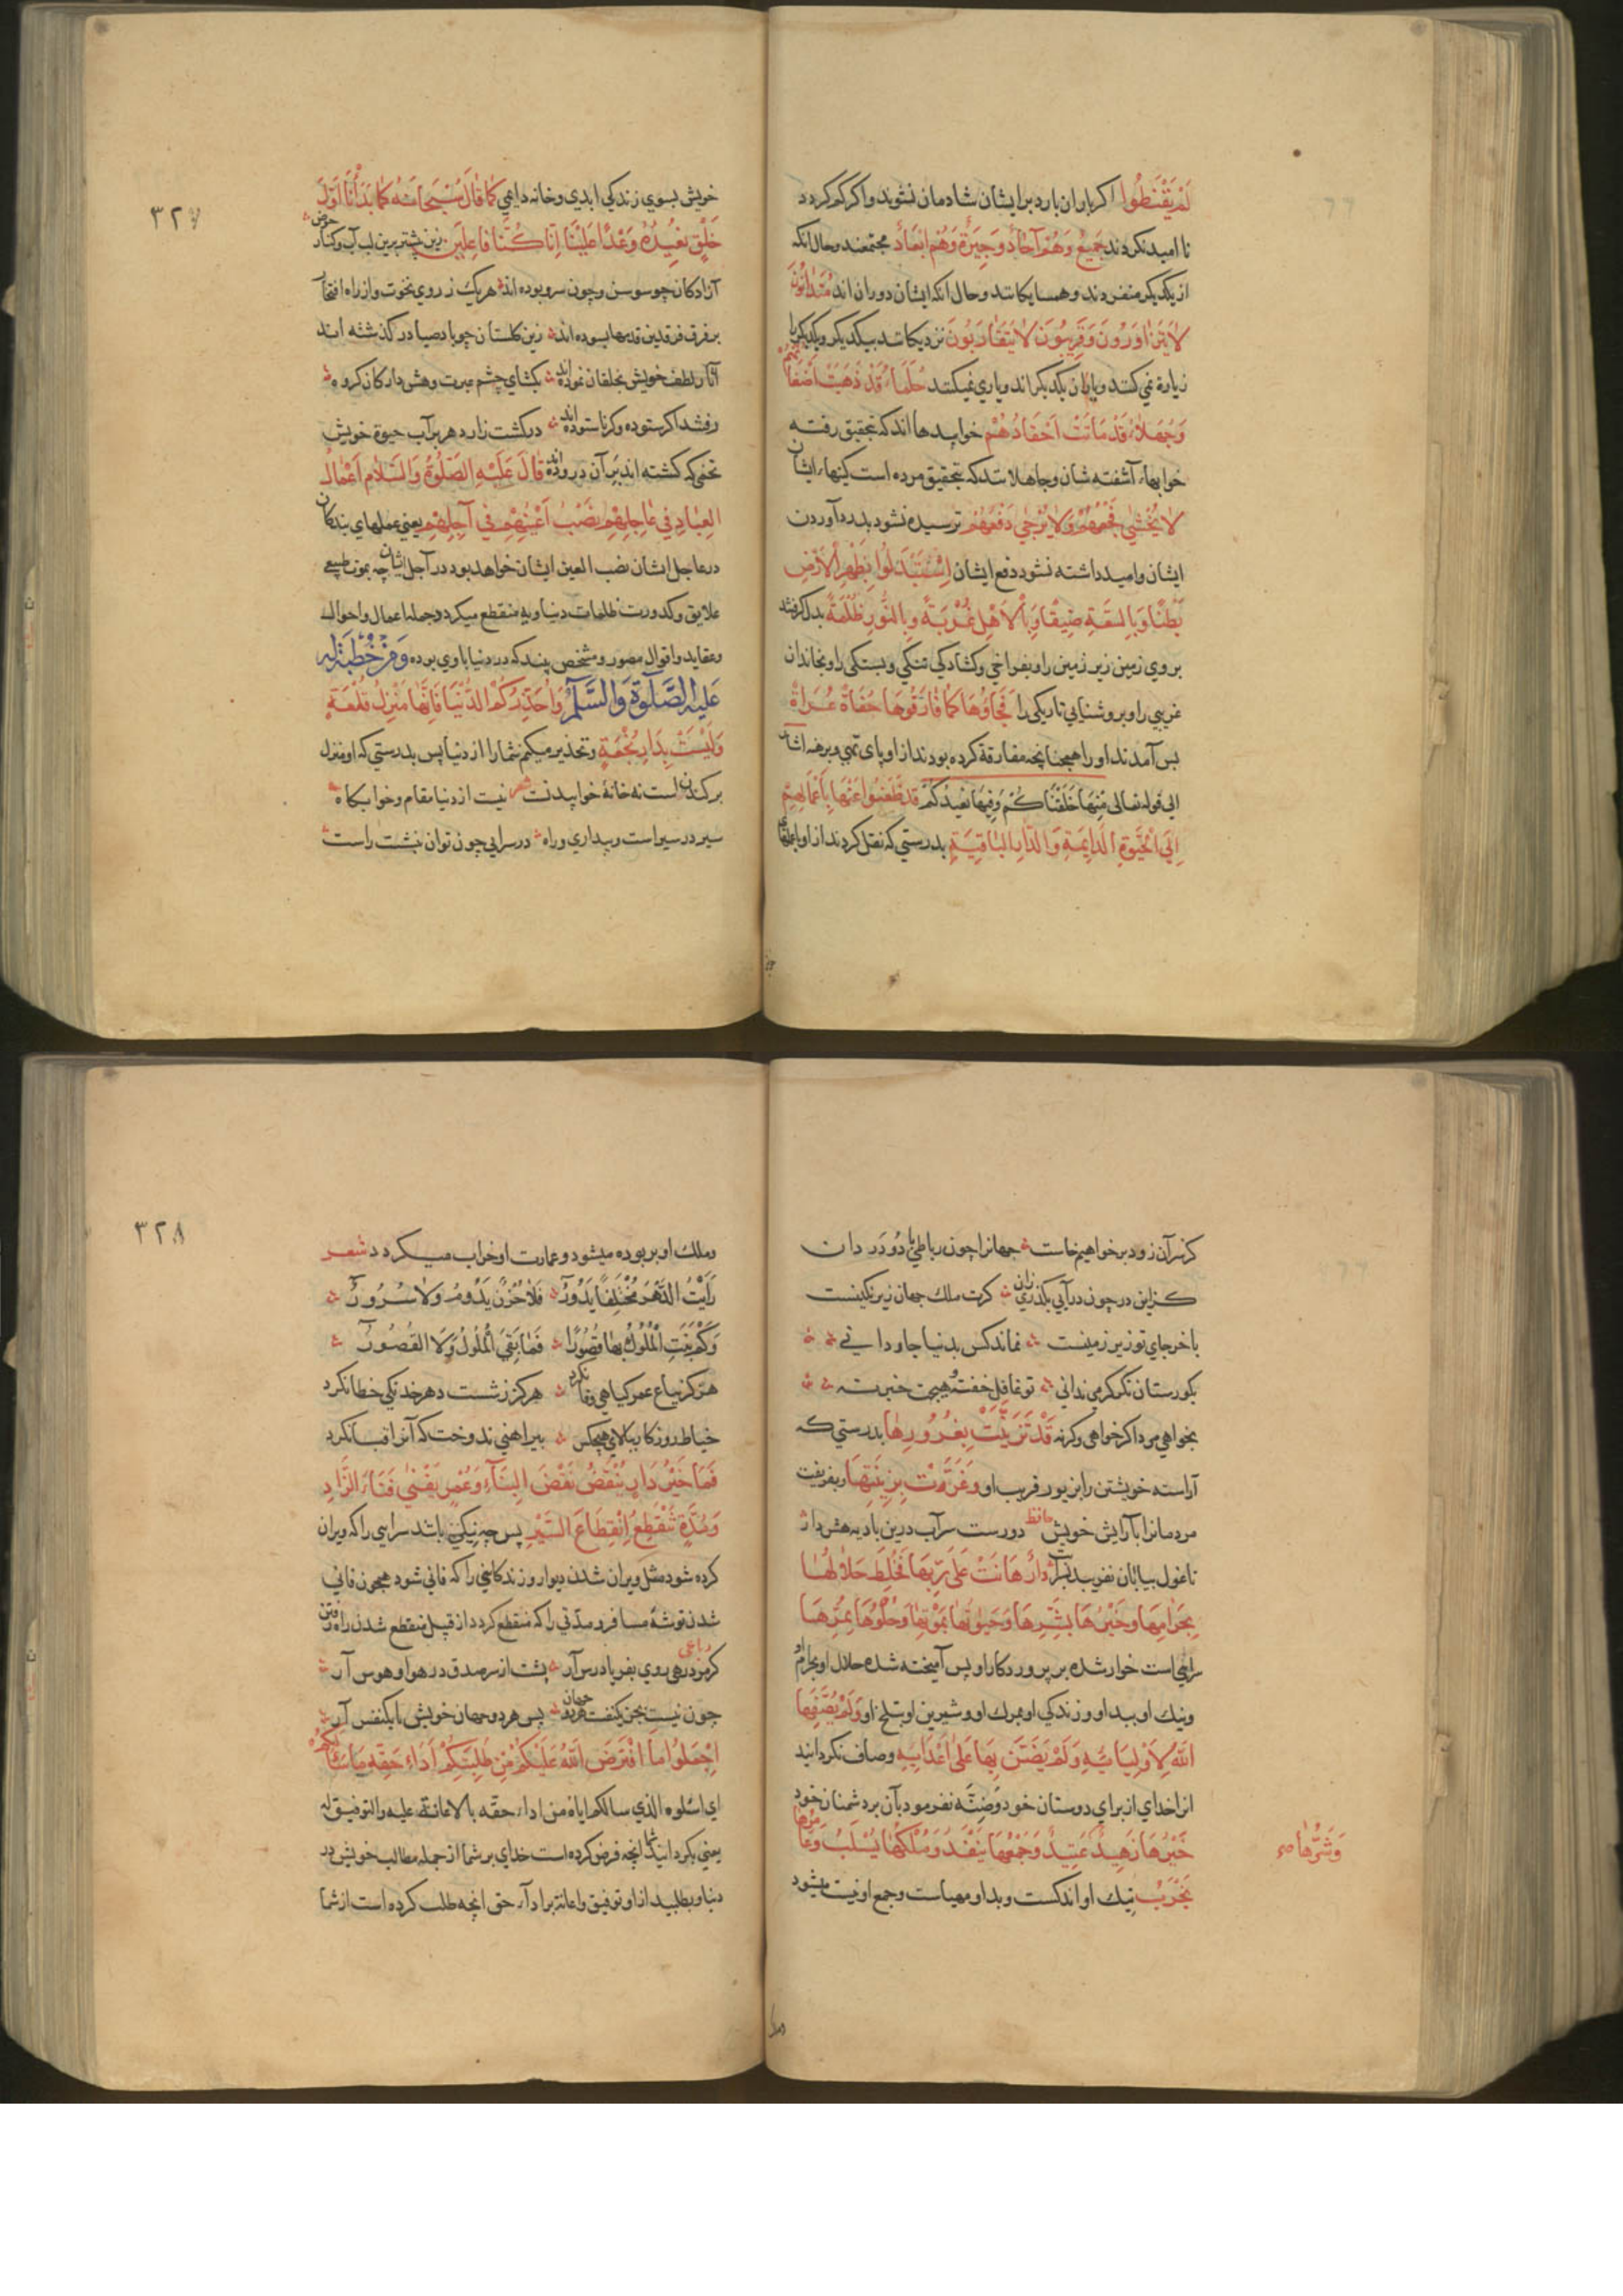 لَمْ يَقْنَطُوا اكر باران بارد بر ايشان شادمان نشوند واكر كم كردد
نا اميد نكردند جَمِيعٌ وَهُمْ آحَادٌ وَجِيرَةٌ وَهُمْ اَبْعَادٌ مجتمعند وحال انكه
از يكديكر منفردند وهمسايكانند وحال انكه ايشان دوران اند مُتَدَانُونَ
لَا يَتَزَاوَرُونَ وَقَرِيبُونَ لَا يَتَقَارَبُونَ نزديكانند بيكديكر ويكديكر را
زيارة نمي كنند وياران يكديكراند وياري نميكنند حُلَمَاءُ قَدْ ذَهَبَتْ اَضْغَانُهُمْ
وَجُهَلَاءُ قَدْ مَاتَتْ اَحْقَادُهُمْ خوابيدها اند كه بتحقيق رفته
خوابهاء آشفته شان وجاهلانند كه بتحقيق مرده است كينهاء ايشان
لَا يُخْشَى فَجْعُهُمْ وَلَا يُرْجَى دَفْعُهُمْ ترسيده نشود بدرد آوردن
ايشان واميد داشته نشود دفع ايشان اِسْتَبْدَلُوا بِظَهْرِ الْاَرْضِ
بَطْنًا وَبِالسَّعَةِ ضِيقًا وَبِالْاَهْلِ غُرْبَةً وَبِالنُّورِ ظُلْمَةً بدل كرفتند
بروي زمين زير زمين را وبفراخي وكشادكي تنكي وبستكي را وبخاندان
غريبي را وبروشنايي تاريكي را فَجَاؤُهَا كَمَا فَارَقُوهَا حُفَاةً عُرَاةً
بس آمدند او را همچنانچه مفارقة كرده بودند از او پاى تهي وبرهنه اشارت
الى قوله تعالى مِنْهَا خَلَقْنَاكُمْ وَفِيهَا نُعِيدُكُمْ قَدْ ظَعَنُوا عَنْهَا بِاَعْمَالِهِمْ
اِلَى الْحَيٰوةِ الدَّايِمَةِ وَالدَّارِ الْبَاقِيَةِ بدرستي كه نقل كردند از او باعملهاي
٣٢٧
خويش بسوي زندكي ابدي وخانه دايمي كَمَا قَالَ سُبْحَانَهُ كَمَا بَدَأْنَا اَوَّلَ
خَلْقٍ نُعِيدُهُ وَعْدًا عَلَيْنَا اِنَّا كُنَّا فَاعِلِينَ زين پيشتر برين لب آب وكنار حوض
آزادكان چو سوسن وچون سرو بوده اند هريك ز روي نخوت واز راه افتخار
بر فرق فرقدين قدمها بسوده اند زين كلستان چو باد صبا در كذشته اند
آثار لطف خويش بخلقان نموده اند بكشاي چشم عبرت وهش دار كان كروه
رفتند اكر ستوده وكر ناستوده اند در كشت زار دهر بر آب حيوة خويش
تخمي كه كشته اند بر آن دروده اند قَالَ عَلَيْهِ الصَّلٰوةُ وَالسَّلَامُ اَعْمَالُ
الْعِبَادِ فِي عَاجِلِهِمْ نَصْبُ اَعْيُنِهِمْ فِي آجِلِهِمْ يعني عملهاي بندكان
در عاجل ايشان نصب العين ايشان خواهد بود در آجل ايشان چه بموت طبيعي
علايق وكدورت ظلمات دنياويه منقطع ميكردد وجمله اعمال واحوال
وعقايد واقوال مصور ومشخص بيند كه در دنيا با وي بوده وَمِنْ خُطْبَةٍ لَهُ
عَلَيْهِ الصَّلٰوةُ وَالسَّلَامُ وَاُحَذِّرُكُمُ الدُّنْيَا فَاِنَّهَا مَنْزِلُ قُلْعَةٍ
وَلَيْسَتْ بِدَارِ نُجْعَةٍ وتحذير ميكنم شما را از دنيا پس بدرستي كه او منزل
بركندن است نه خانهٔ خوابيدنست شعر نيست از دنيا مقام وخوابكاه
سير در سير است وبيداري وراه در سرايي چون توان بنشست راست
كز سر آن زود بر خواهيم خاست جهانرا چون رباطي با دو در دان
كزين در چون درآيي بكذري زان كرت ملك جهان زير نكينست
باخر جاي تو زير زمينست نماند كس بدنيا جاوداني
بكورستان نكر كر مي نداني تو غافل خفته وهيچت خبر نه
بخواهي مرد اكر خواهي وكر نه قَدْ تَزَيَّنَتْ بِغُرُورِهَا بدرستي كه
آراسته خويشتن را بزيور فريب او وَغَرَّتْ بِزِينَتِهَا وبفريفت
مردمانرا بآرايش خويش حافظ دورست سرآب درين باديه هش دار
تا غول بيابان نفريبد بسرآبت دَارٌ هَانَتْ عَلَى رَبِّهَا فَخُلِطَ حَلَالُهَا
بِحَرَامِهَا وَخَيْرُهَا بِشَرِّهَا وَحَيٰوتُهَا بِمَوْتِهَا وَحُلْوُهَا بِمُرِّهَا
سرايي است خوار شده بر پروردكار او پس آميخته شده حلال او بحرام او
ونيك او ببد او وزندكي او بمرك او وشيرين او بتلخ او وَلَمْ يُصْفِهَا
اللهُ لِاَوْلِيَائِهِ وَلَمْ يَضَنَّ بِهَا عَلَى اَعْدَائِهِ وصاف نكردانيد
انرا خداي از براي دوستان خود وضنّه نفرمود بآن بر دشمنان خود
خَيْرُهَا زَهِيدٌ عَتِيدٌ وَجَمْعُهَا يَنْفَدُ وَمُلْكُهَا يُسْلَبُ وَعَامِرُهَا
وَشَرُّهَا صح
يَخْرَبُ نيك او اندكست وبد او مهياست وجمع او نيست ميشود
٣٢٨
وملك او بربوده ميشود وعمارت او خراب ميكردد شعر
رَاَيْتُ الدَّهْرَ مُخْتَلِفًا يَدُورُ فَلَا حُزْنٌ يَدُومُ وَلَا سُرُورٌ
وَكَمْ بَنَتِ الْمُلُوكُ بِهَا قُصُورًا فَمَا بَقِيَ الْمُلُوكُ وَلَا الْقُصُورُ
هركز بباغ عمر كياهي وفا نكرد هركز ز شست دهر خدنكي خطا نكرد
خياط روزكار ببالاي هيچكس پيراهني ندوخت كه آنرا قبا نكرد
فَمَا خَيْرُ دَارٍ تُنْقَضُ نَقْضَ الْبِنَاءِ وَعُمْرٍ يَفْنَى فَنَاءَ الزَّادِ
وَمُدَّةٍ تَنْقَطِعُ اِنْقِطَاعَ السَّيْرِ پس چه نيكي باشد سرايي را كه ويران
كرده شود مثل ويران شدن ديوار وزندكاني را كه فاني شود همچون فاني
شدن توشهٔ مسافر ومدّتي را كه منقطع كردد از قبيل منقطع شدن راه رفتن
رباعي
كر مرد رهي روي بفرياد رس آر پشت از سر صدق در هوا وهوس آر
چون نيست بجز يكنفست هر دو جهان پس هر دو جهان خويش با يكنفس آر
اِجْعَلُوا مَا افْتَرَضَ اللهُ عَلَيْكُمْ مِنْ طَلِبَتِكُمْ اَدَاءَ حَقِّهِ مَا سَاَلَكُمْ
اي اسئلوه الذي سالكم اياه من اداء حقه بالاعانة عليه والتوفيق له
يعني بكردانيد شما انچه فرض كرده است خداي بر شما از جمله مطالب خويش در
دنيا وبطلبيد از او توفيق واعانة بر اداء حق انچه طلب كرده است از شما